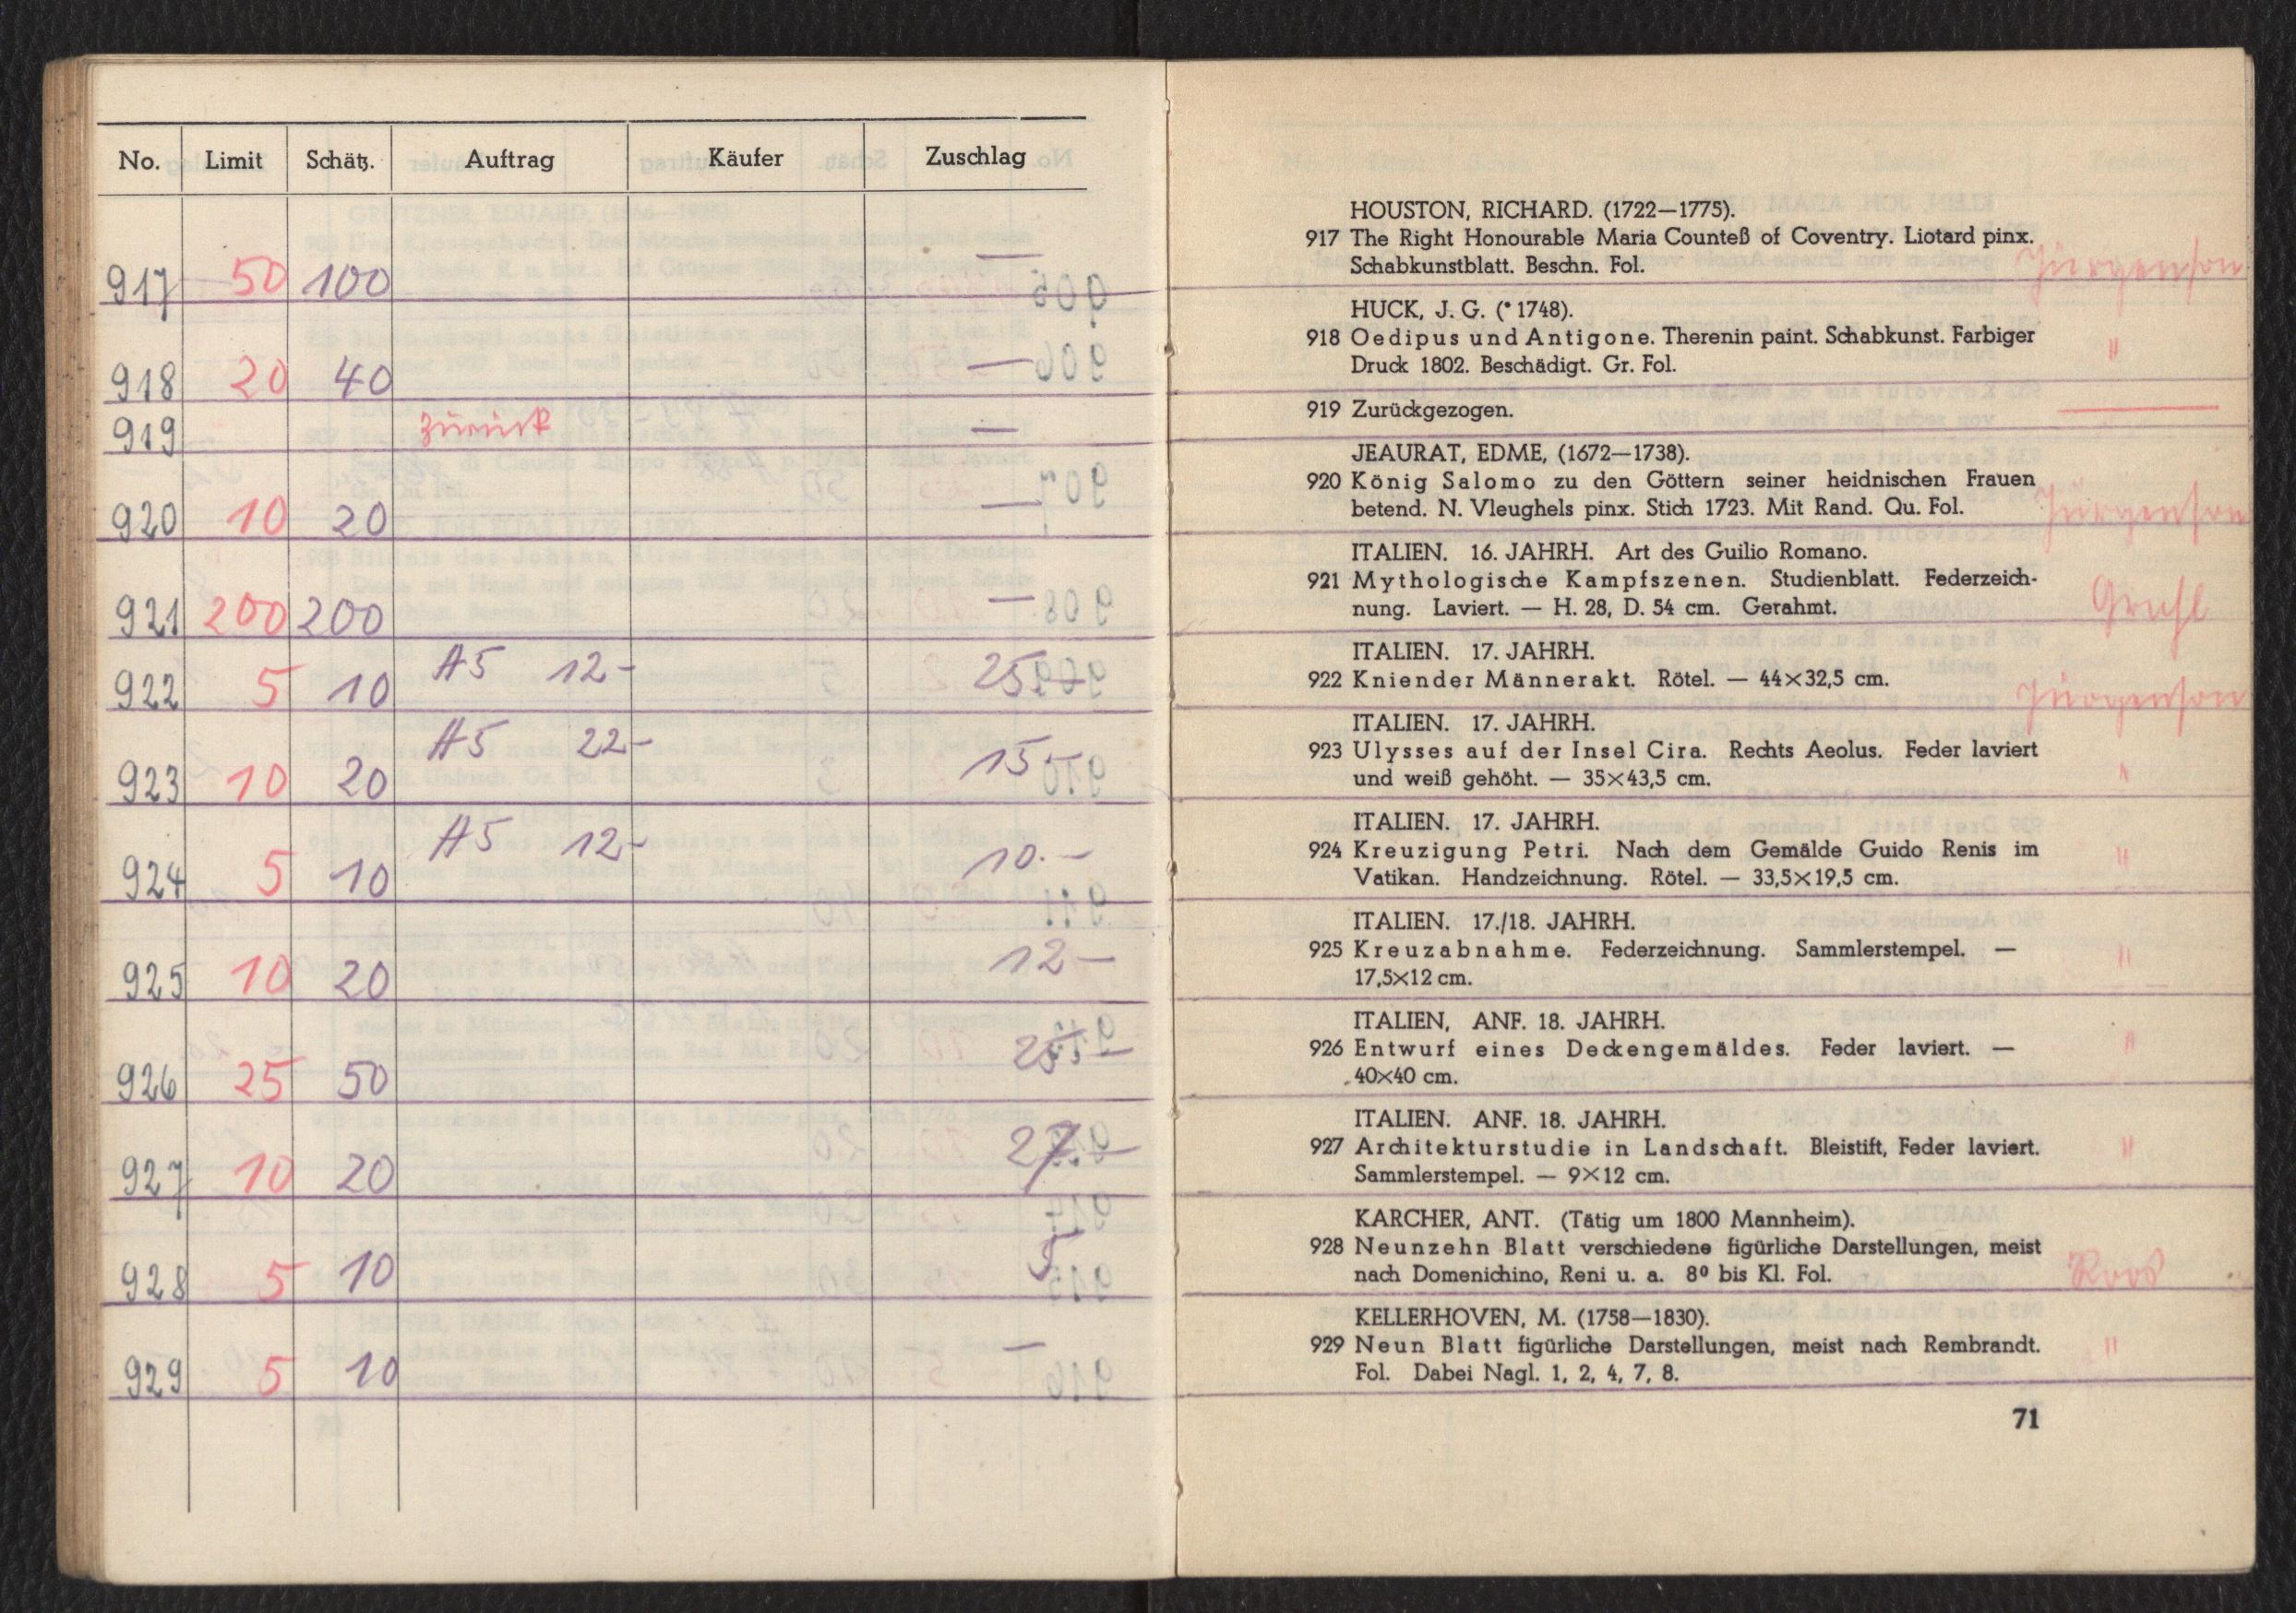 No. Limit Schätz. Auftrag Käufer Zuschlag
917 50 100 —
918 20 40 —
919 zurück —
920 10 20 —
921 200 200 —
922 5 10 A5 12.- 25.-
923 10 20 A5 22.- 15.-
924 5 10 A5 12.- 10.-
925 10 20 12.-
926 25 50 25.-
927 10 20 27.-
928 5 10 5
929 5 10 —
HOUSTON, RICHARD. (1722—1775).
917 The Right Honourable Maria Counteß of Coventry. Liotard pinx.
Schabkunstblatt. Beschn. Fol. Jürgenson
HUCK, J. G. (* 1748).
918 Oedipus und Antigone. Therenin paint. Schabkunst. Farbiger
Druck 1802. Beschädigt. Gr. Fol. "
919 Zurückgezogen. —
JEAURAT, EDME, (1672—1738).
920 König Salomo zu den Göttern seiner heidnischen Frauen
betend. N. Vleughels pinx. Stich 1723. Mit Rand. Qu. Fol. Jürgenson
ITALIEN. 16. JAHRH. Art des Guilio Romano.
921 Mythologische Kampfszenen. Studienblatt. Federzeich-
nung. Laviert. — H. 28, D. 54 cm. Gerahmt.
ITALIEN. 17. JAHRH.
922 Kniender Männerakt. Rötel. — 44×32,5 cm. Jürgenson
ITALIEN. 17. JAHRH.
923 Ulysses auf der Insel Cira. Rechts Aeolus. Feder laviert
und weiß gehöht. — 35×43,5 cm. "
ITALIEN. 17. JAHRH.
924 Kreuzigung Petri. Nach dem Gemälde Guido Renis im "
Vatikan. Handzeichnung. Rötel. — 33,5×19,5 cm.
ITALIEN. 17./18. JAHRH.
925 Kreuzabnahme. Federzeichnung. Sammlerstempel. — "
17,5×12 cm.
ITALIEN, ANF. 18. JAHRH.
926 Entwurf eines Deckengemäldes. Feder laviert. — "
40×40 cm.
ITALIEN. ANF. 18. JAHRH.
927 Architekturstudie in Landschaft. Bleistift, Feder laviert. "
Sammlerstempel. — 9×12 cm.
KARCHER, ANT. (Tätig um 1800 Mannheim).
928 Neunzehn Blatt verschiedene figürliche Darstellungen, meist
nach Domenichino, Reni u. a. 8º bis Kl. Fol. Roos
KELLERHOVEN, M. (1758—1830).
929 Neun Blatt figürliche Darstellungen, meist nach Rembrandt. "
Fol. Dabei Nagl. 1, 2, 4, 7, 8.
71